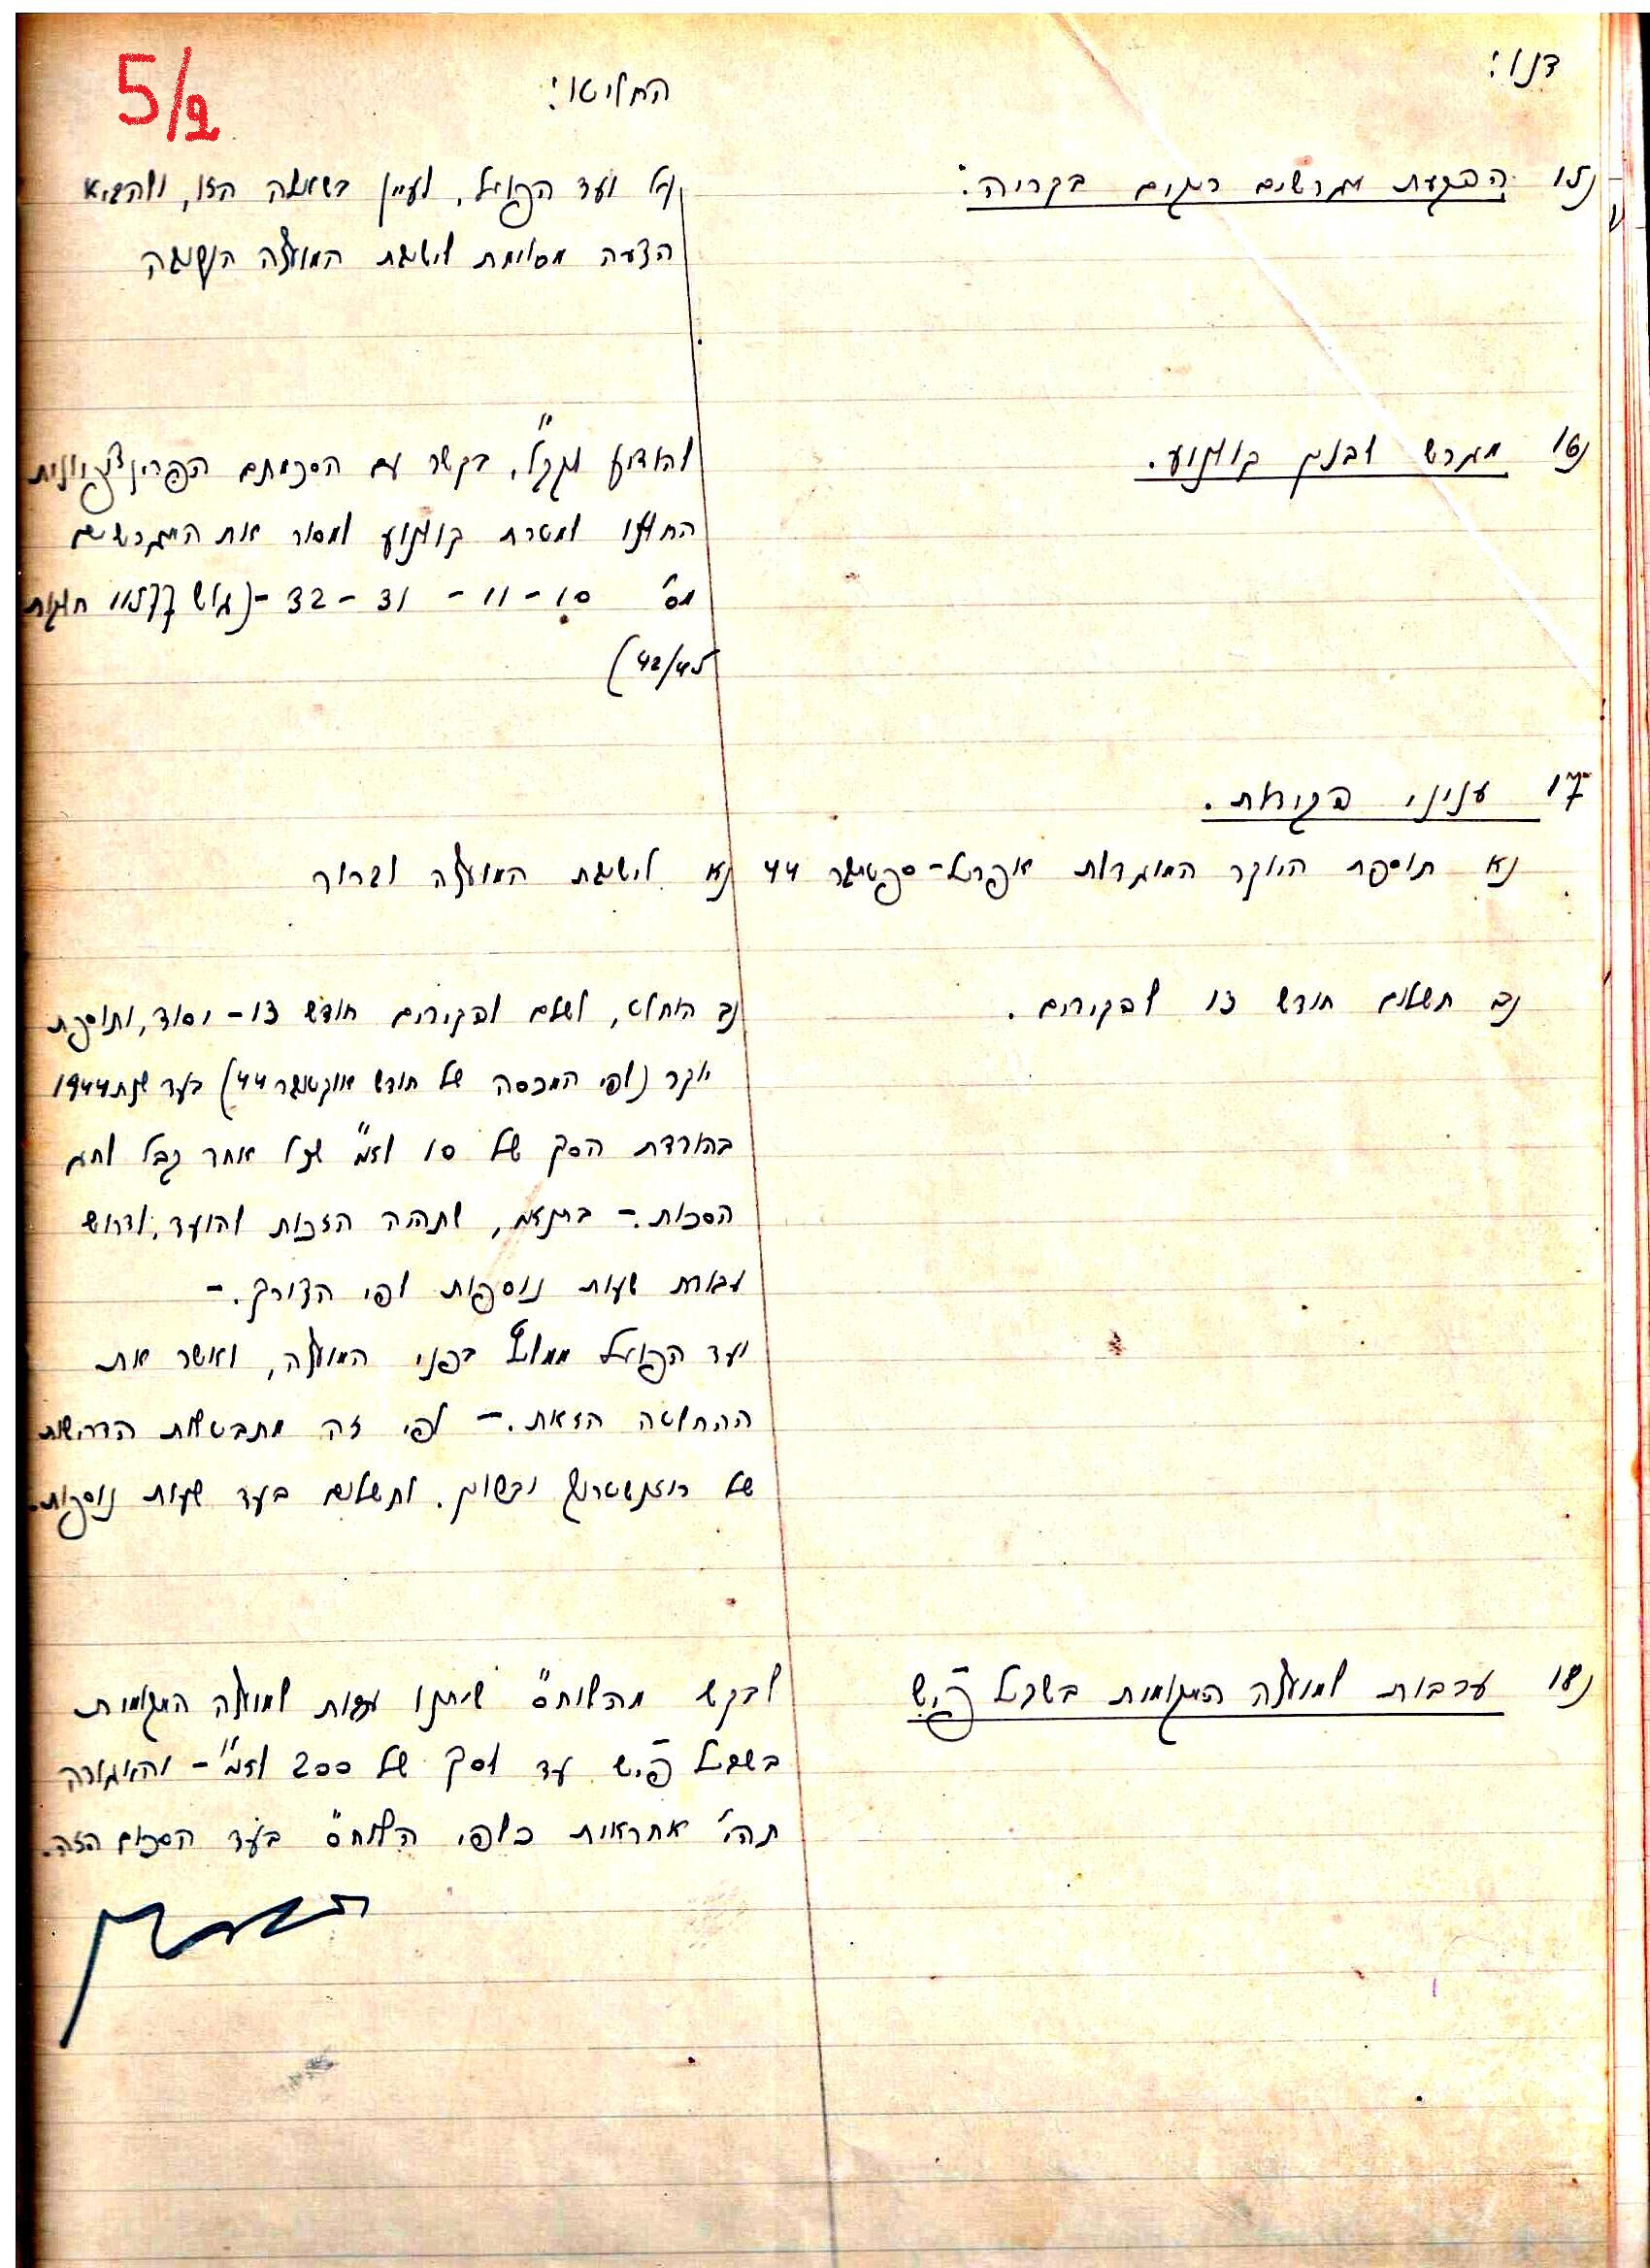 5/2
דנו:
החליטו:
15) הפקעת מגרשים ריקים בקריה:
על ועד הפועל, לעיין בשאלה הזו, ולהביא
הצעה מסוימת לישיבת המועצה הקרובה
16) מגרש לבנין קולנוע.
להודיע לקק"ל, בקשר עם הסכמתם הפרינציפיונית
החליטו למטרת קולנוע למסור את המגרשים
מס' 10 - 11 - 31 - 32 - (גוש חלקות
42/45)
17) עניני פקידות.
א) תוספת היוקר המוגדלות אפריל - ספטמבר 44
א) לישיבת המועצה וברור
ב) תשלום חודש 13 לפקידים.
ב) הוחלט, לשלם לפקידים חודש 13 - יסוד, ותוספת
יוקר (לפי המכסה של חודש אוקטובר 44) בעד שנת 1944
בהורדת הסך של 10 לא"י שכל אחד קבל לחג
הסכות. - בתנאי, שתהיה הזכות לועד, לדרוש
עבודת שעות נוספות לפי הצורך. -
ועד הפועל ממליץ בפני המועצה, לאשר את
ההחלטה הזאת. - לפי זה מתבטלות הדרישות
של רוזנשטרויך לתשלום בעד שעות נוספות.
18) ערבות למועצה המקומית בשביל פיש
לבקש מהלוח"ס שיתנו ערבות למועצה המקומית
בשביל פיש עד לסך של 200 לא"י - והאגודה
תהי' אחראית כלפי הלוח"ס בעד הסכום הזה.